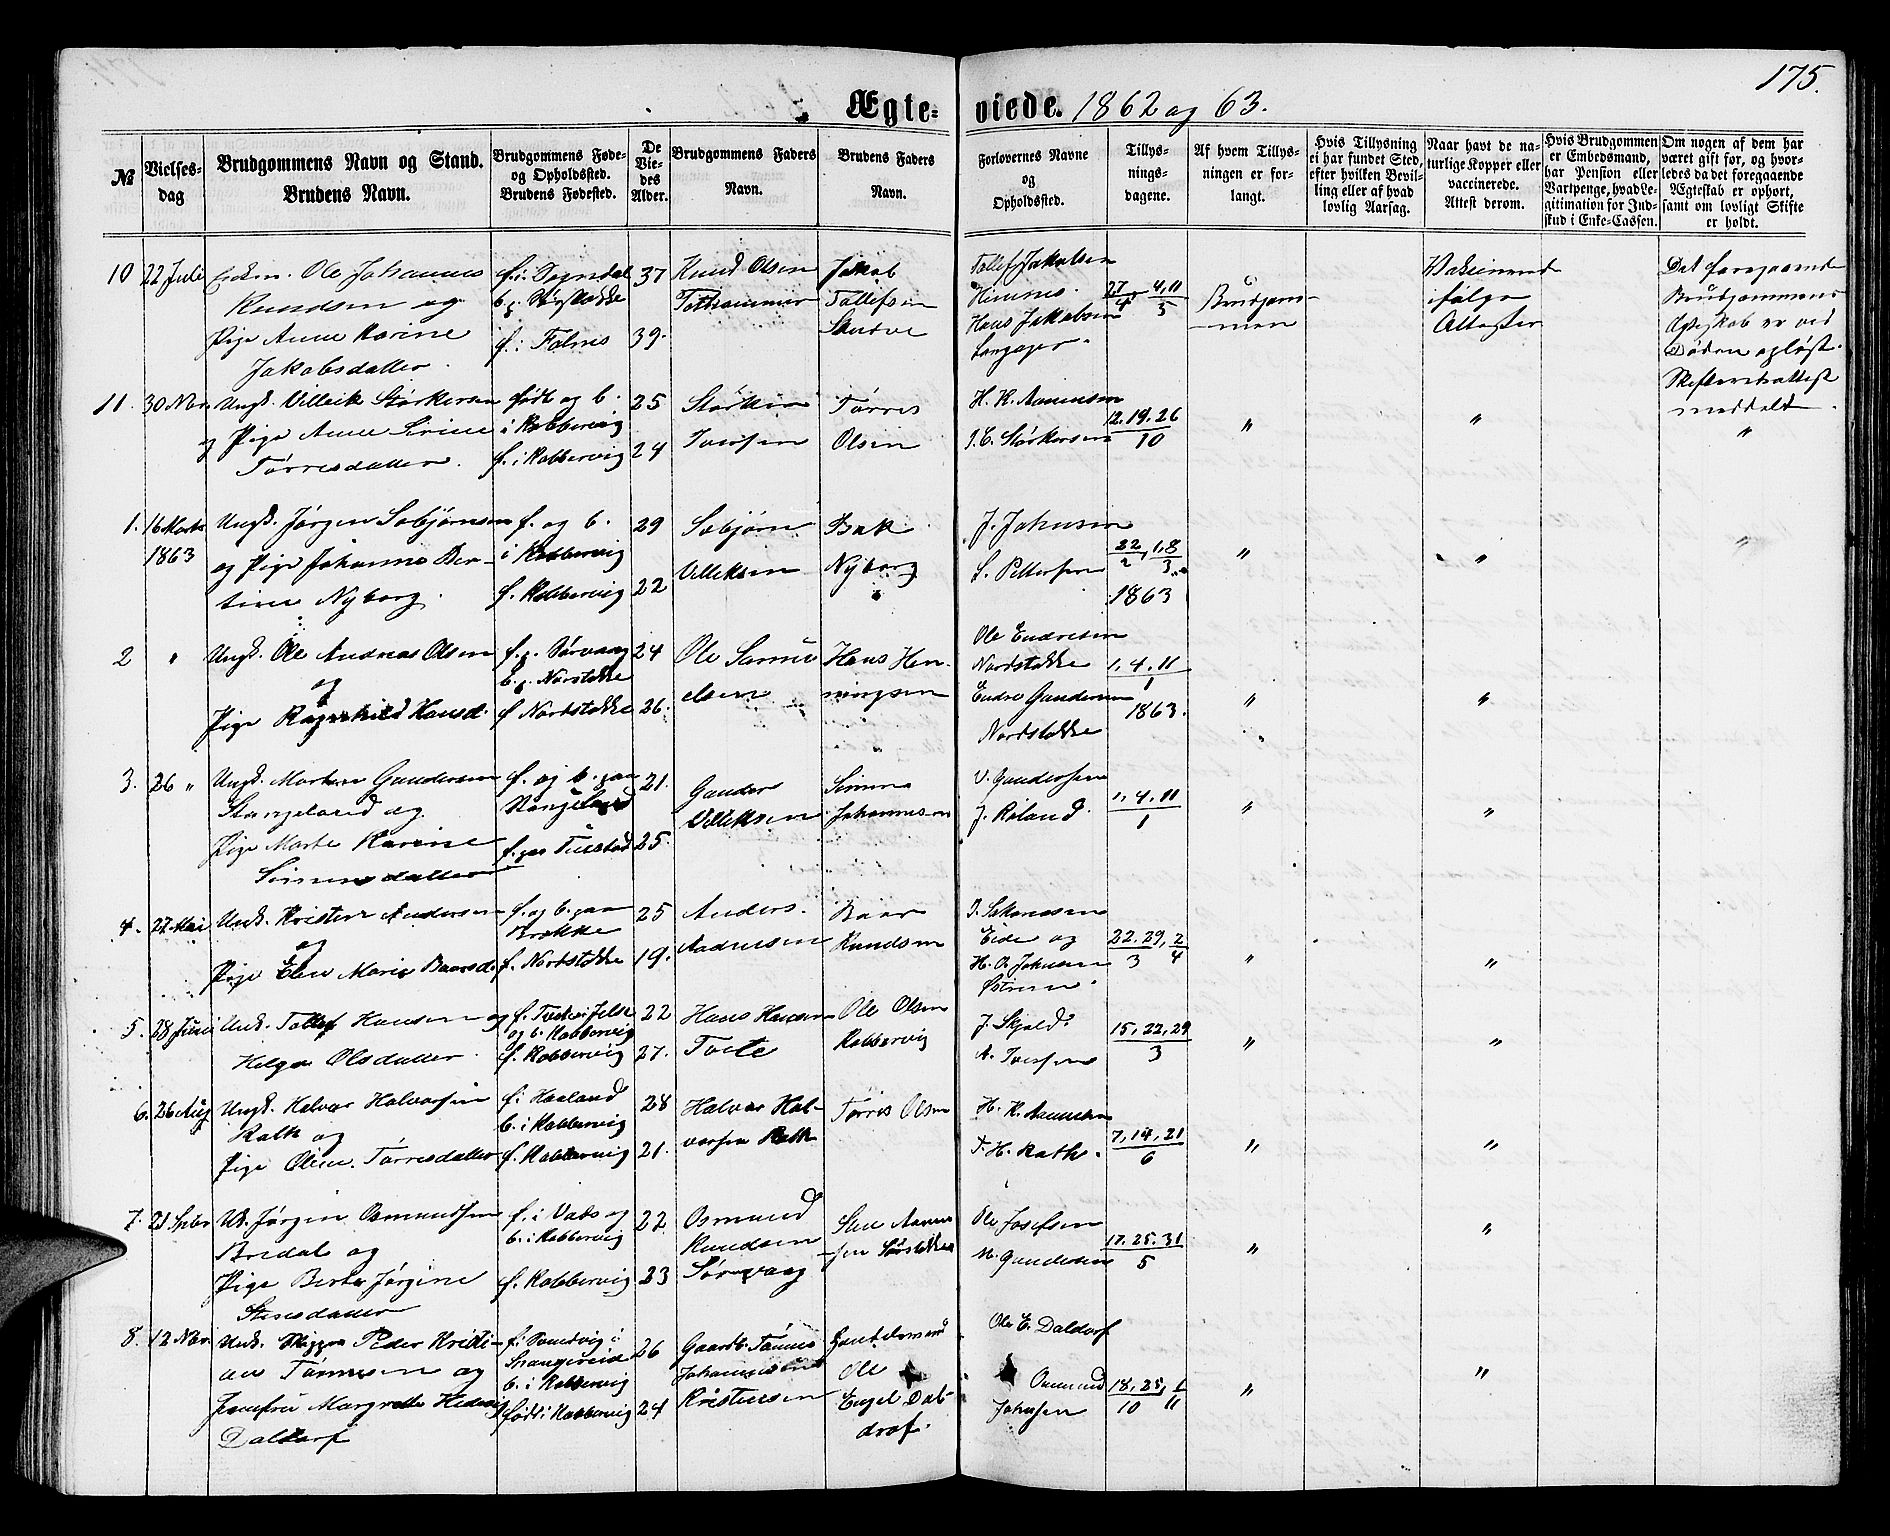 175.
Ægteviede. 1862 og 63.
№
Vielsesdag
Brudgommens Navn og Stand.
Brudens Navn.
Brudgommens Føde-
og Opholdssted.
Brudens Fødested.
De
Vie-
des
Alder.
Brudgommens Faders
Navn.
Brudens Faders
Navn.
Forlovernes Navne
og
Opholdssted.
Tillys-
nings-
dagene.
Af hvem Tillys-
ningen er for-
langt.
Hvis Tillysning
ei har fundet Sted,
efter hvilken Bevil-
ling eller af hvad
lovlig Aarsag.
Naar havt de na-
turlige Kopper eller
vaccinerede.
Attest derom.
Hvis Brudgommen
er Embedsmand,
har Pension eller
Vartpenge, hvad Le-
gitimation for Ind-
skud i Enke-Cassen.
Om nogen af dem har
været gift før, og hvor-
ledes da det foregaaende
Ægteskab er ophørt,
samt om lovligt Skifte
er holdt.
10 22 Juli
Ole Johannes
Knudsen og
Pige Anne Karine
Jakobsdatter.
f. i Falnes
37
39.
Knud Olsen
Jakob
Tollefsen
Tollef Jakobsen
Hans Jakobsen
27/4, 4,11/5
Brudgom-
men
ifølge
Attester
Det foregaaende
Brudgommens
Ægteskab er ved
Døden opløst.
Skifteretsattest
meddelt.
11. 30 Nov.
Ungk. Villeik Størkersen
og Pige Anne Serine
Tørresdatter.
født og b.
i Kobbervig
f. i Kobbervig
25
24
Størker
Iversen
Tørres
Olsen
H. K. Amundsen
J. C. Størkersen
12. 19. 26
10
"
"
"
1. 16 Marts
1863
Ungk. Jørgen Sebjørnsen
og Pige Johanne Ber-
tine Nyborg.
f. og b.
i Kobbervig
f. Kobbervig
29
22
Sebjørn
Villeksen
Bak
Nyborg
J. Johnsen
L. Pettersen
22/2, 1,8/3
1863
"
"
"
2 "
Ungk. Ole Andreas Olsen
og
Pige Ragnhild Hansd.
f. p. Sørvaag
b. p. Norstokke
f. Nordstokke
24
26.
Ole Samu-
elsen
Hans Hen-
ningsen
Ole Endresen
Nordstokke
Endre Gundersen
Nordstokke
1. 4. 11
1
1863.
"
"
3. 26 "
Ungk. Morten Gundersen
Stangeland og
Pige Marte Karine
Simonsdatter
f. og b. paa
Stangeland
f. paa Tuestad
21.
25.
Gunder
Villeksen
Simon
Johannesen
V. Gundersen
J. Røland.
1. 4. 11
1
"
"
4. 27 Mai
Unk. Kristen Andersen
og
Pige Elen Marie Baarsd.
f. og b. paa
Brekke
f. Nordstokke
25
19.
Anders
Andersen
Baar
Knudsen
Eide og
H. O. Johnsen
Østrem.
22. 29, 2
3 4
"
"
5. 28 Juni
Unk. Tollef Hansen og
Helga Olsdatter.
og b. Kobbervig
f. Kobbervig
22
27.
Hans Hansen
Ole Olsen
Kobbervig
J. Skjold
A. Iversen
15, 22, 29
3
"
"
6. 26 Aug
Ungk. Halvor Halvorsen
Rath og
Pige Oline Tørresdatter
f. i Haaland
b. i Kobbervig
f. Kobbervig
28
21.
Halvor Hal-
vorsen Rath
Tørres Olsen
H. K. Amundsen
T. H. Rath.
7, 14, 21
6
"
"
7. 21 Sptbr
Uk. Jørgen Osmundsen
Bredal og
Pige Berte Jørgine
Stensdatter
f. i Vats og
b. i Kobbervig
f. Kobbervig
22
23
Osmund
Knudsen
Sørvaag
Sten Aamun-
sen Sørstokke
Ole Josefsen
M. Gundersen
17. 25. 31
5
"
"
8. 12 Nov.
Unk. Skipper Peder Kristi-
an Tønnesen og
Jomfru Margrethe Hedevig
Daldorf
f. i Sandvig i
b. i Kobbervig
født i Kobbervig
26
24
Gaardb. Tønnes
Johannesen
Kristensen
Handelsmand
Ole
Engel Dal-
drof.
Ole E. Daldorf
Osmund
Johnsen
18, 25, 1
10 11
"
"